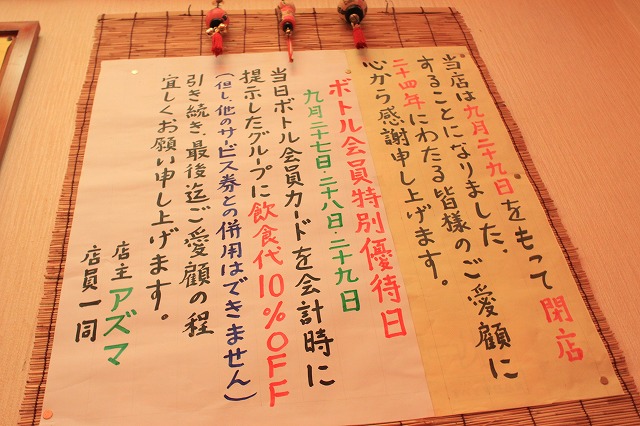 当店は九月二十九日をもって閉店
することになりました、
二十四年にわたる皆様のご愛顧に
心から感謝申し上げます。
ボトル会員特別優待日
九月二十七日・二十八日・二十九日
当日ボトル会員カードを会計時に
提示したグループに飲食代10%OFF
(但し、他のサービス券との併用はできません)
引き続き最後迄ご愛顧の程
宜しくお願い申し上げます。
店主アズマ
店員一同